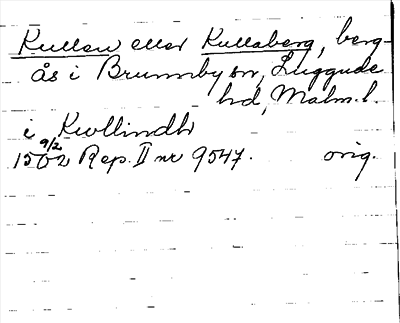 Kullen eller Kullaberg, berg-
ås i Brunnby sn, Luggude
hd, Malm. l.
i Kwllindh
9/2
1502 Rep. II nr 9547. orig.